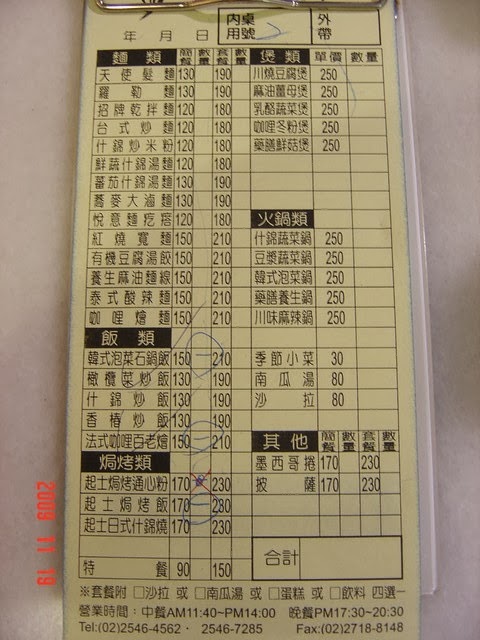 年 月 日 內桌用號 外帶
麵類 簡餐 數量 套餐 數量
天使髮麵 130 190
羅勒麵 130 190
招牌乾拌麵 120 180
台式炒麵 120 180
什錦炒米粉 120 180
鮮蔬什錦湯麵 130 190
蕃茄什錦湯麵 130 190
蕎麥大滷麵 130 190
悅意麵疙瘩 120 180
紅燒寬麵 150 210
有機豆腐湯餃 150 210
養生麻油麵線 150 210
泰式酸辣麵 150 210
咖哩燴麵 150 210
飯類
韓式泡菜石鍋飯 150 210
橄欖菜炒飯 130 190
什錦炒飯 130 190
香椿炒飯 130 190
法式咖哩百老燴 150 210
焗烤類
起士焗烤通心粉 170 230
起士焗烤飯 170 230
起士日式什錦燒 170 230
特餐 90 150
煲類 單價 數量
川燒豆腐煲 250
麻油薑母煲 250
乳酪蔬菜煲 250
咖哩冬粉煲 250
藥膳鮮菇煲 250
火鍋類
什錦蔬菜鍋 250
豆漿蔬菜鍋 250
韓式泡菜鍋 250
藥膳養生鍋 250
川味麻辣鍋 250
季節小菜 30
南瓜湯 80
沙拉 80
其他 簡餐 數量 套餐 數量
墨西哥捲 170 230
披薩 170 230
合計
※套餐附 □沙拉 或 □南瓜湯 或 □蛋糕 或 □飲料 四選一
營業時間：中餐AM11:40~PM14:00 晚餐PM17:30~20:30
Tel:(02)2546-4562 · 2546-7285 Fax:(02)2718-8148
2009 11 19